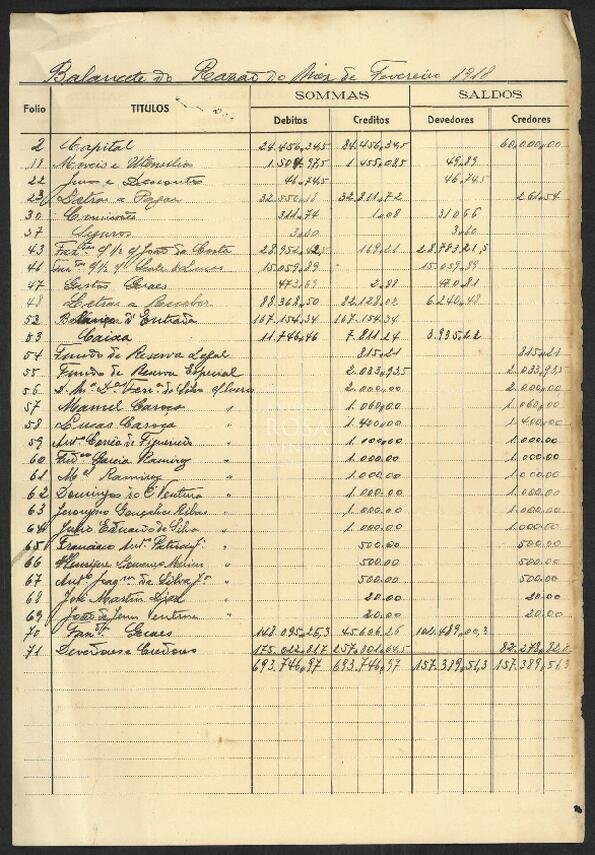 Balancete do Razão do Mez de Fevereiro 1918
SOMMAS SALDOS
Folio TITULOS Debitos Creditos Devedores Credores
2 Capital 24.456,34,5 84.456,34,5 60.000,00
11 Moveis e Utensilios 1.504,97,5 1.455,08,5 49,89
22 Juros e Descontos 46,74,5 46,74,5
23 Letras a Pagar 32.550,18 32.811,72 261,54
30 Comissões 311,74 1,08 310,66
37 Seguros 3,60 3,60
43 João da Costa 28.952,42,5 169,21 28.783,21,5
46 15.059,89 15.059,89
47 Gastos Geraes 473,69 2,88 470,81
48 Letras a Receber 88.368,50 82.128,02 6.240,48
52 Balanço d'Entrada 167.154,34 167.154,34
53 Caixa 11.746,46 7.811,24 3.935,22
54 Fundo de Reserva Legal 815,21 815,21
55 Fundo de Reserva Especial 2.033,93,5 2.033,93,5
56 da Silva 2.000,00 2.000,00
57 Manuel Caroço " 1.060,00 1.060,00
58 Lucas Caroço " 1.400,00 1.400,00
59 Antº de Figueiredo " 1.000,00 1.000,00
60 Garcia Ramirez " 1.000,00 1.000,00
61 Mel Ramirez " 1.000,00 1.000,00
62 Domingos Ventura " 1.000,00 1.000,00
63 Jeronymo Gonçalves Ribas " 1.000,00 1.000,00
64 Julio Eduardo da Silva " 1.000,00 1.000,00
65 Francisco Antº " 500,00 500,00
66 Henrique Lourenço " 500,00 500,00
67 Antº Joaqm da Silva Jor " 500,00 500,00
68 José Martin " 20,00 20,00
69 João de Ventura " 20,00 20,00
70 Geraes 148.095,26,3 45.606,26 102.489,00,3
71 Devedores e Credores 175.022,81,7 257.301,64,5 82.278,82,8
693.746,97 693.746,97 157.389,51,3 157.389,51,3